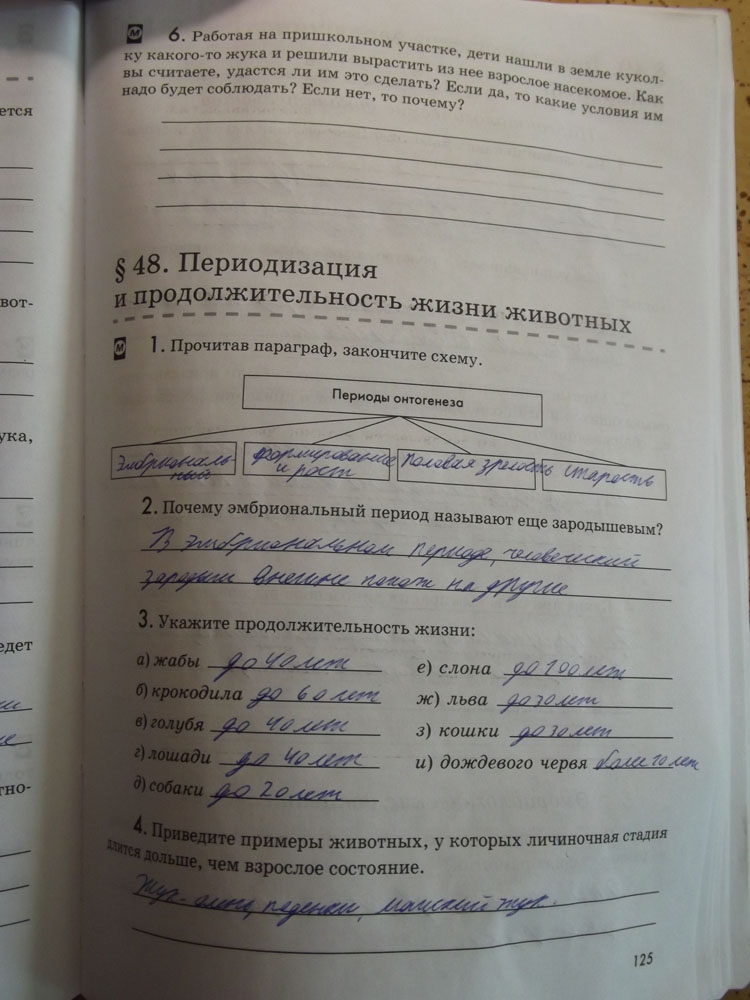 6. Работая на пришкольном участке, дети нашли в земле кукол-
ку какого-то жука и решили вырастить из нее взрослое насекомое. Как
вы считаете, удастся ли им это сделать? Если да, то какие условия им
надо будет соблюдать? Если нет, то почему?
§ 48. Периодизация
и продолжительность жизни животных
1. Прочитав параграф, закончите схему.
Периоды онтогенеза
Эмбриональ-
ный
формирование
и рост
половая зрелость
старость
2. Почему эмбриональный период называют еще зародышевым?
В эмбриональном периоде, человеческий
зародыш внешне похож на другие
3. Укажите продолжительность жизни:
а) жабы до 40 лет
б) крокодила до 60 лет
в) голубя до 40 лет
г) лошади до 40 лет
д) собаки до 20 лет
е) слона до 100 лет
ж) льва до 30 лет
з) кошки до 30 лет
и) дождевого червя более 10 лет
4. Приведите примеры животных, у которых личиночная стадия
длится дольше, чем взрослое состояние.
Жук-олень, поденки, майский жук.
125
ется
вот-
ука,
едет
тно-